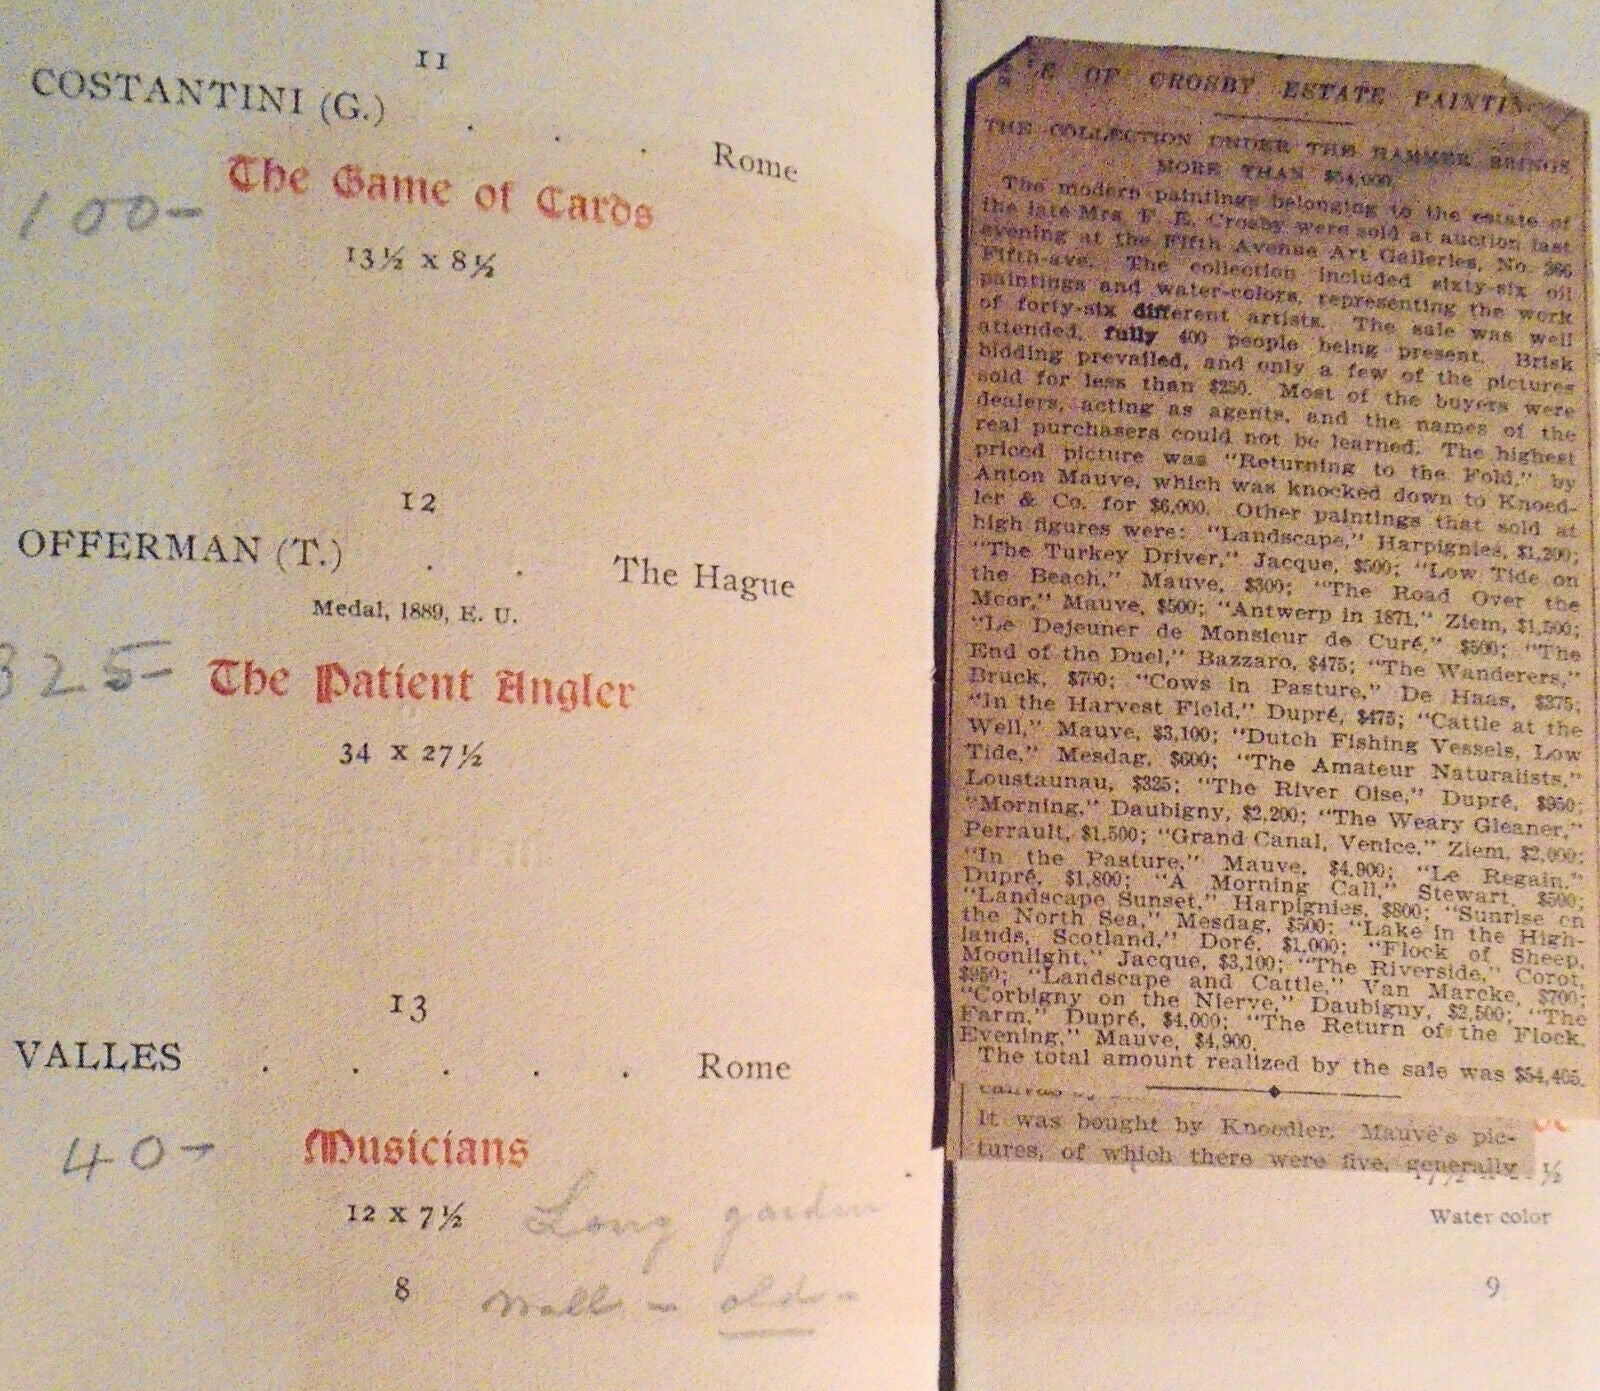 11
COSTANTINI (G.) . . . Rome
The Game of Cards
100-
13½ x 8½
12
OFFERMAN (T.) . . The Hague
Medal, 1889, E. U.
325-
The Patient Angler
34 x 27½
13
VALLES . . . . . Rome
Musicians
40-
12 x 7½ Long garden
8 wall - old -
OF CROSBY ESTATE PAINTIN
THE COLLECTION UNDER THE HAMMER BRINGS
MORE THAN $54,000.
The modern paintings belonging to the estate of
the late Mrs. F. E. Crosby were sold at auction last
evening at the Fifth Avenue Art Galleries, No. 366
Fifth-ave. The collection included sixty-six oil
paintings and water-colors, representing the work
of forty-six different artists. The sale was well
attended, fully 400 people being present. Brisk
bidding prevailed, and only a few of the pictures
sold for less than $250. Most of the buyers were
dealers, acting as agents, and the names of the
real purchasers could not be learned. The highest
priced picture was "Returning to the Fold," by
Anton Mauve, which was knocked down to Knoed-
ler & Co. for $6,000. Other paintings that sold at
high figures were: "Landscape," Harpignies, $1,200;
"The Turkey Driver," Jacque, $500; "Low Tide on
the Beach," Mauve, $300; "The Road Over the
Moor," Mauve, $500; "Antwerp in 1871," Ziem, $1,500;
"Le Dejeuner de Monsieur de Curé," $500; "The
End of the Duel," Bazzaro, $475; "The Wanderers,"
Bruck, $700; "Cows in Pasture," De Haas, $375;
"In the Harvest Field," Dupré, $475; "Cattle at the
Well," Mauve, $3,100; "Dutch Fishing Vessels, Low
Tide," Mesdag, $600; "The Amateur Naturalists,"
Loustaunau, $325; "The River Oise," Dupré, $950;
"Morning," Daubigny, $2,200; "The Weary Gleaner,"
Perrault, $1,500; "Grand Canal, Venice," Ziem, $2,000;
"In the Pasture," Mauve, $4,900; "Le Regain,"
Dupré, $1,800; "A Morning Call," Stewart, $500;
"Landscape Sunset," Harpignies, $800; "Sunrise on
the North Sea," Mesdag, $500; "Lake in the High-
lands, Scotland," Doré, $1,000; "Flock of Sheep,
Moonlight," Jacque, $3,100; "The Riverside," Corot,
$950; "Landscape and Cattle," Van Marcke, $700;
"Corbigny on the Nierve," Daubigny, $2,500; "The
Farm," Dupré, $4,000; "The Return of the Flock,
Evening," Mauve, $4,900.
The total amount realized by the sale was $54,405.
It was bought by Knoedler. Mauve's pic-
tures, of which there were five, generally
Water color
9